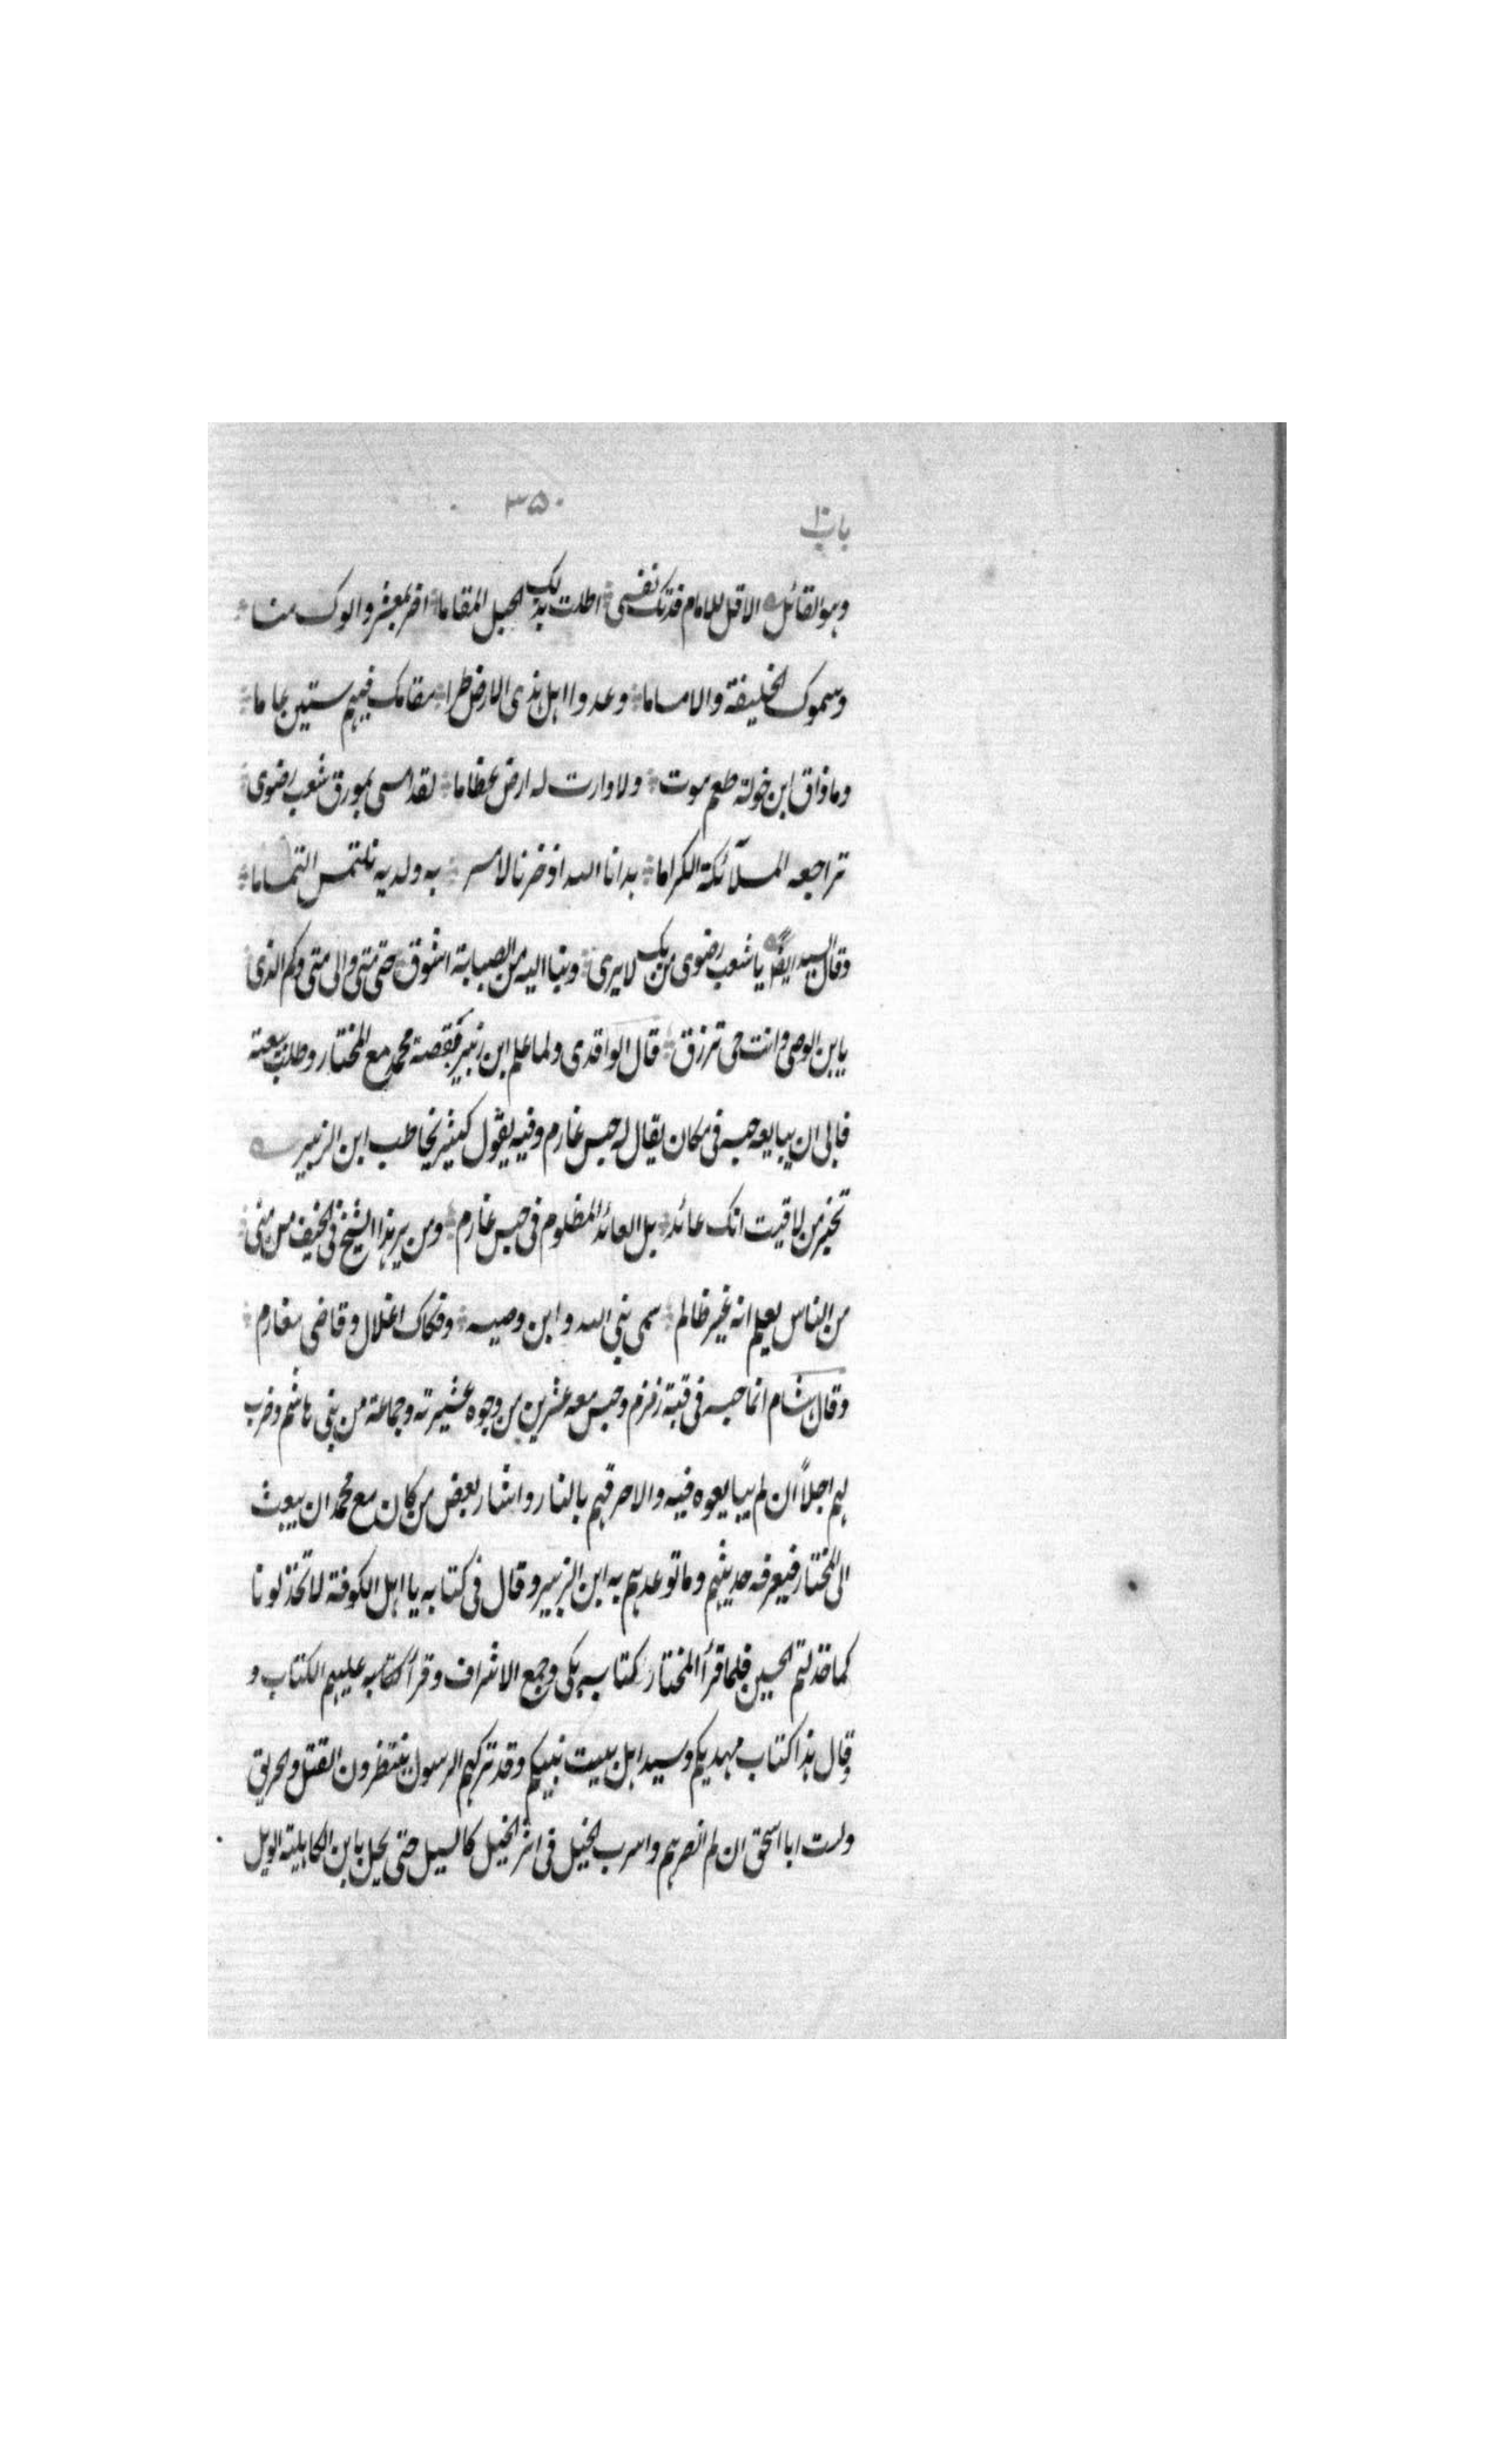 باب ١٠
٣٥٠
وهو القائل الا قل للامام فدتك نفسى اطلت بذلك الجبل المقاما اضر بمعشر والوك منا
وسموك الخليفة والاماما وعدوا اهل هذى الارض طرا مقامك فيهم ستين عاما
وما ذاق ابن خولة طعم موت ولا وارت له ارض عظاما لقد امسى بمورق شعب رضوى
تراجعه الملآئكة الكراما هدانا الله اذ خرنا لامر به ولديه نلتمس التماما
وقال السيد ايضًا يا شعب رضوى من بك لا يرى وبنا اليه من الصبابة اشوق حتى متى والى متى وكم الذى
يا بن الوصى وانت حى ترزق قال الواقدى ولما علم ابن زبير بقصة محمد مع المختار وطلب بيعته
فابى ان يبايعه حبسه فى مكان يقال له حبس غارم وفيه يقول كثير يخاطب ابن الزبير
تخبر من لاقيت انك عائد بل العائذ المظلوم فى حبس غارم ومن ير هذا الشيخ فى الخيف من منى
من الناس يعلم انه غير ظالم سمى نبى الله وابن وصيه وفكاك اغلال وقاضى مغارم
وقال هشام انما حبسه فى قبة زمزم وحبس معه عشرين من وجوه عشيرته وجماعة من بنى هاشم وضرب
لهم اجلاً ان لم يبايعوه فيه والا حرقهم بالنار واشار بعض من كان مع محمد ان يبعث
الى المختار فيعرفه حديثهم وما توعدهم به ابن الزبير وقال فى كتابه يا اهل الكوفة لا تخذلونا
كما خذلتم الحسين فلما قرأ المختار كتابه بكى وجمع الاشراف وقرأ كتابه عليهم الكتاب و
وقال هذا كتاب مهديكم وسيد اهل بيت نبيكم وقد تركهم الرسول ينتظرون القتل والحريق
ولست ابا اسحق ان لم انصرهم واسرب الخيل فى اثر الخيل كالسيل حتى يحل بابن الكاهلية الويل